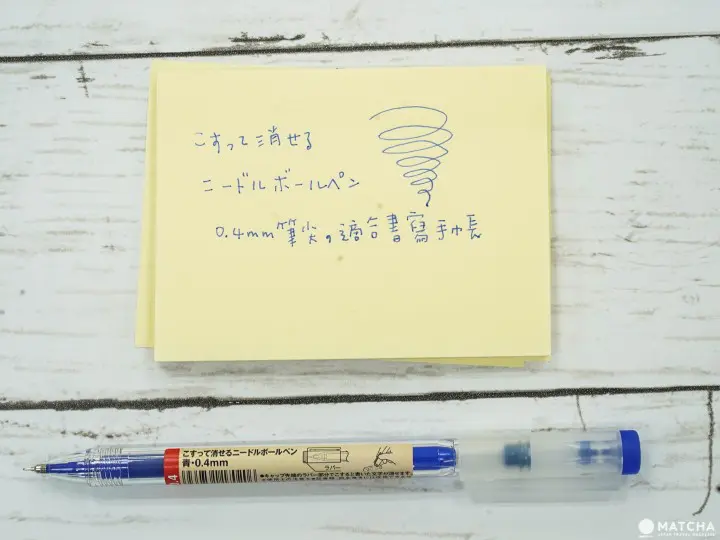 こすって消せる
ニードルボールペン
0.4mm筆尖，適合書寫手帳
こすって消せるニードルボールペン
青・0.4mm
ラバー
4
MATCHA